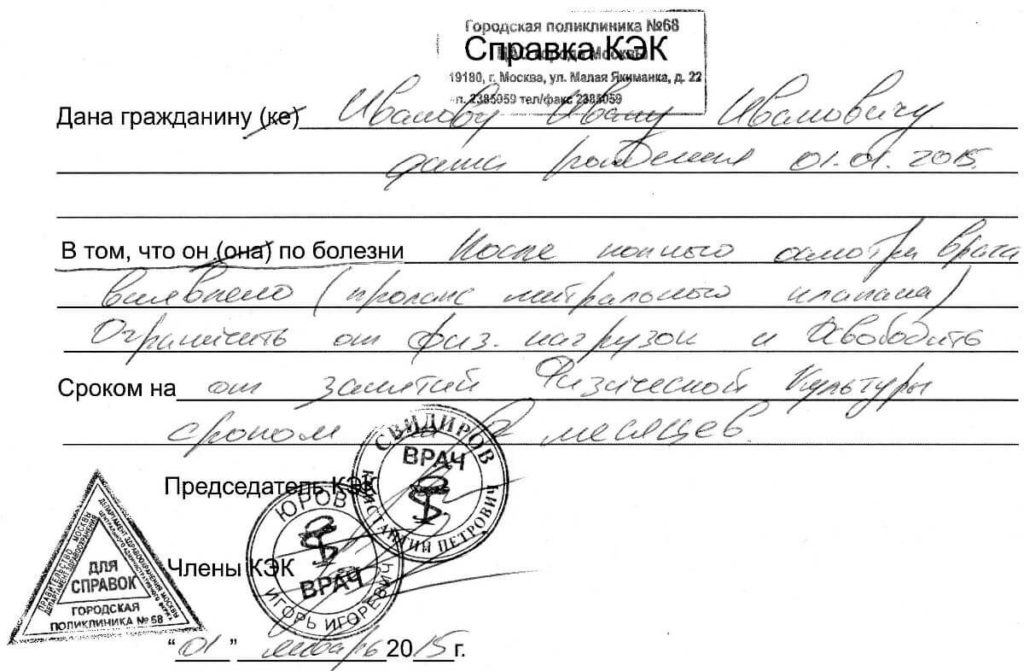 Городская поликлиника №68
Справка КЭК
ЦАО города Москвы
19180, г. Москва, ул. Малая Якиманка, д. 22
п. 2385059 тел/факс 2385059
Дана гражданину (ке) Иванову Ивану Ивановичу
дата рождения 01.01.2015
В том, что он (она) по болезни После полного осмотра врача
выявлено (пролапс митрального клапана)
Ограничить от физ. нагрузок и Освободить
Сроком на от занятий Физической Культуры
сроком месяцев
Председатель КЭК
СВИДИРОВ
ВРАЧ
КОНСТАНТИН ПЕТРОВИЧ
Члены КЭК
ЮРОВ
ВРАЧ
ИГОРЬ ИГОРЕВИЧ
ПРАВИТЕЛЬСТВО МОСКВЫ
ДЕПАРТАМЕНТ ЗДРАВООХРАНЕНИЯ
ДЛЯ
СПРАВОК
ГОРОДСКАЯ
ПОЛИКЛИНИКА № 68
"01" января 2015г.